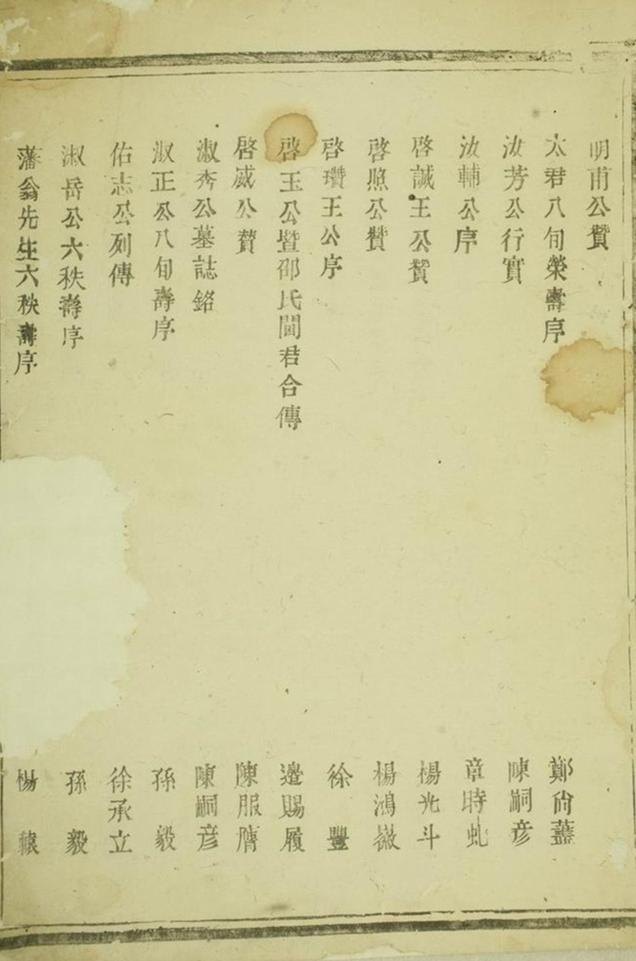 明甫公贊
太君八旬榮壽序 鄭尙藎
汝芳公行實 陳嗣彦
汝輔公序 章時虬
啓誠王公贊 楊光斗
啓照公贊 楊鴻
啓瓚王公序 徐豐
啓玉公曁邵氏閫君合傳 邊賜履
啓威公贊 陳服膺
淑秀公墓誌銘 陳嗣彦
淑正公八旬壽序 孫毅
佑志公列傳 徐承立
淑岳公六秩壽序 孫毅
藩翁先生六秩壽序 楊